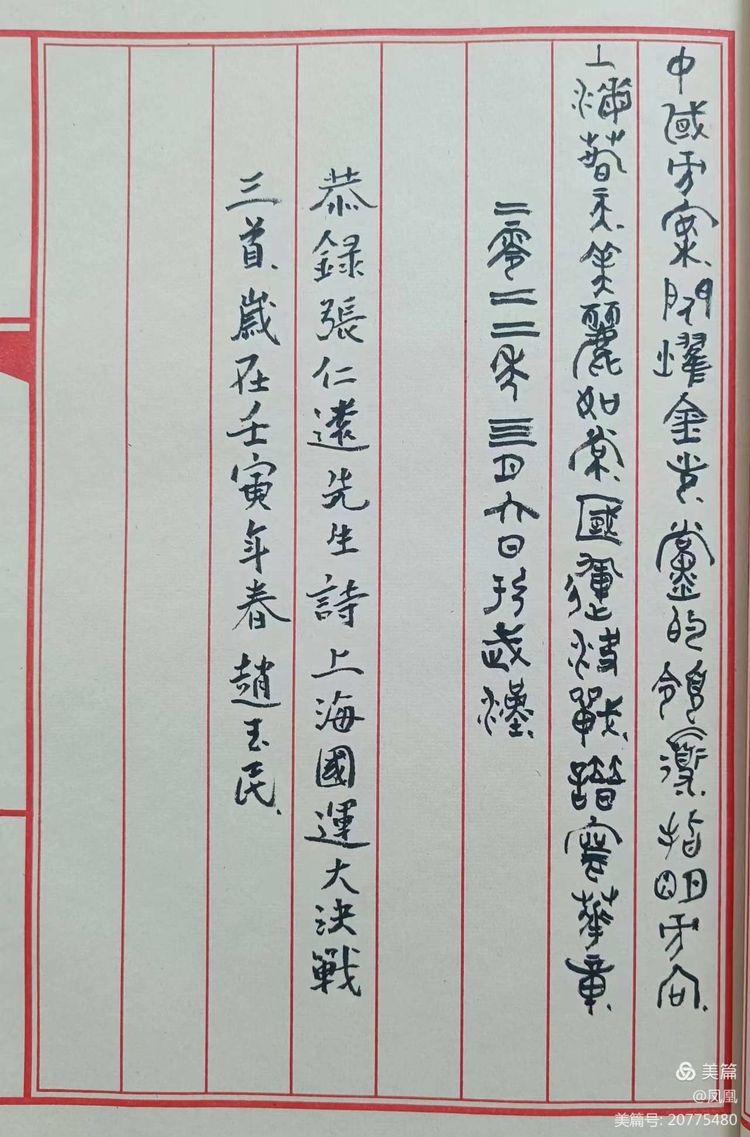 中國方案、閃耀金光、黨的領導指明方向、
上海春天美麗如常、國運決戰、譜寫華章
二零二二年三月六日於武漢
恭錄張仁遠先生詩上海國運大決戰
三首、歲在壬寅年春趙玉民、
美篇
@凤凰
美篇号: 20775480